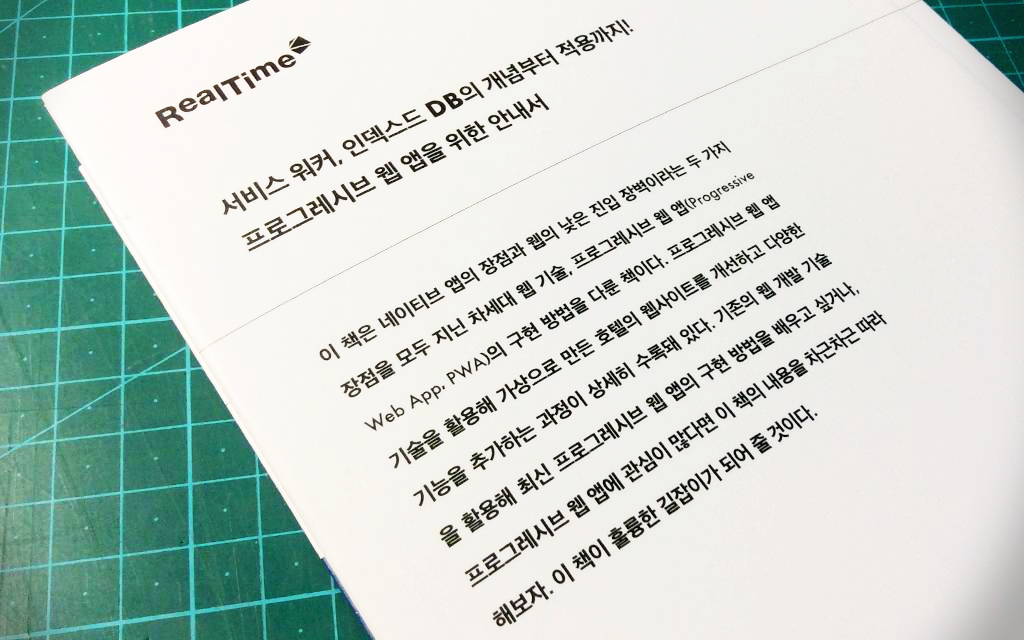 RealTime
서비스 워커, 인덱스드 DB의 개념부터 적용까지!
프로그레시브 웹 앱을 위한 안내서
이 책은 네이티브 앱의 장점과 웹의 낮은 진입 장벽이라는 두 가지
장점을 모두 지닌 차세대 웹 기술, 프로그레시브 웹 앱(Progressive
Web App, PWA)의 구현 방법을 다룬 책이다. 프로그레시브 웹 앱
기술을 활용해 가상으로 만든 호텔의 웹사이트를 개선하고 다양한
기능을 추가하는 과정이 상세히 수록돼 있다. 기존의 웹 개발 기술
을 활용해 최신 프로그레시브 웹 앱의 구현 방법을 배우고 싶거나,
프로그레시브 웹 앱에 관심이 많다면 이 책의 내용을 차근차근 따라
해보자. 이 책이 훌륭한 길잡이가 되어 줄 것이다.